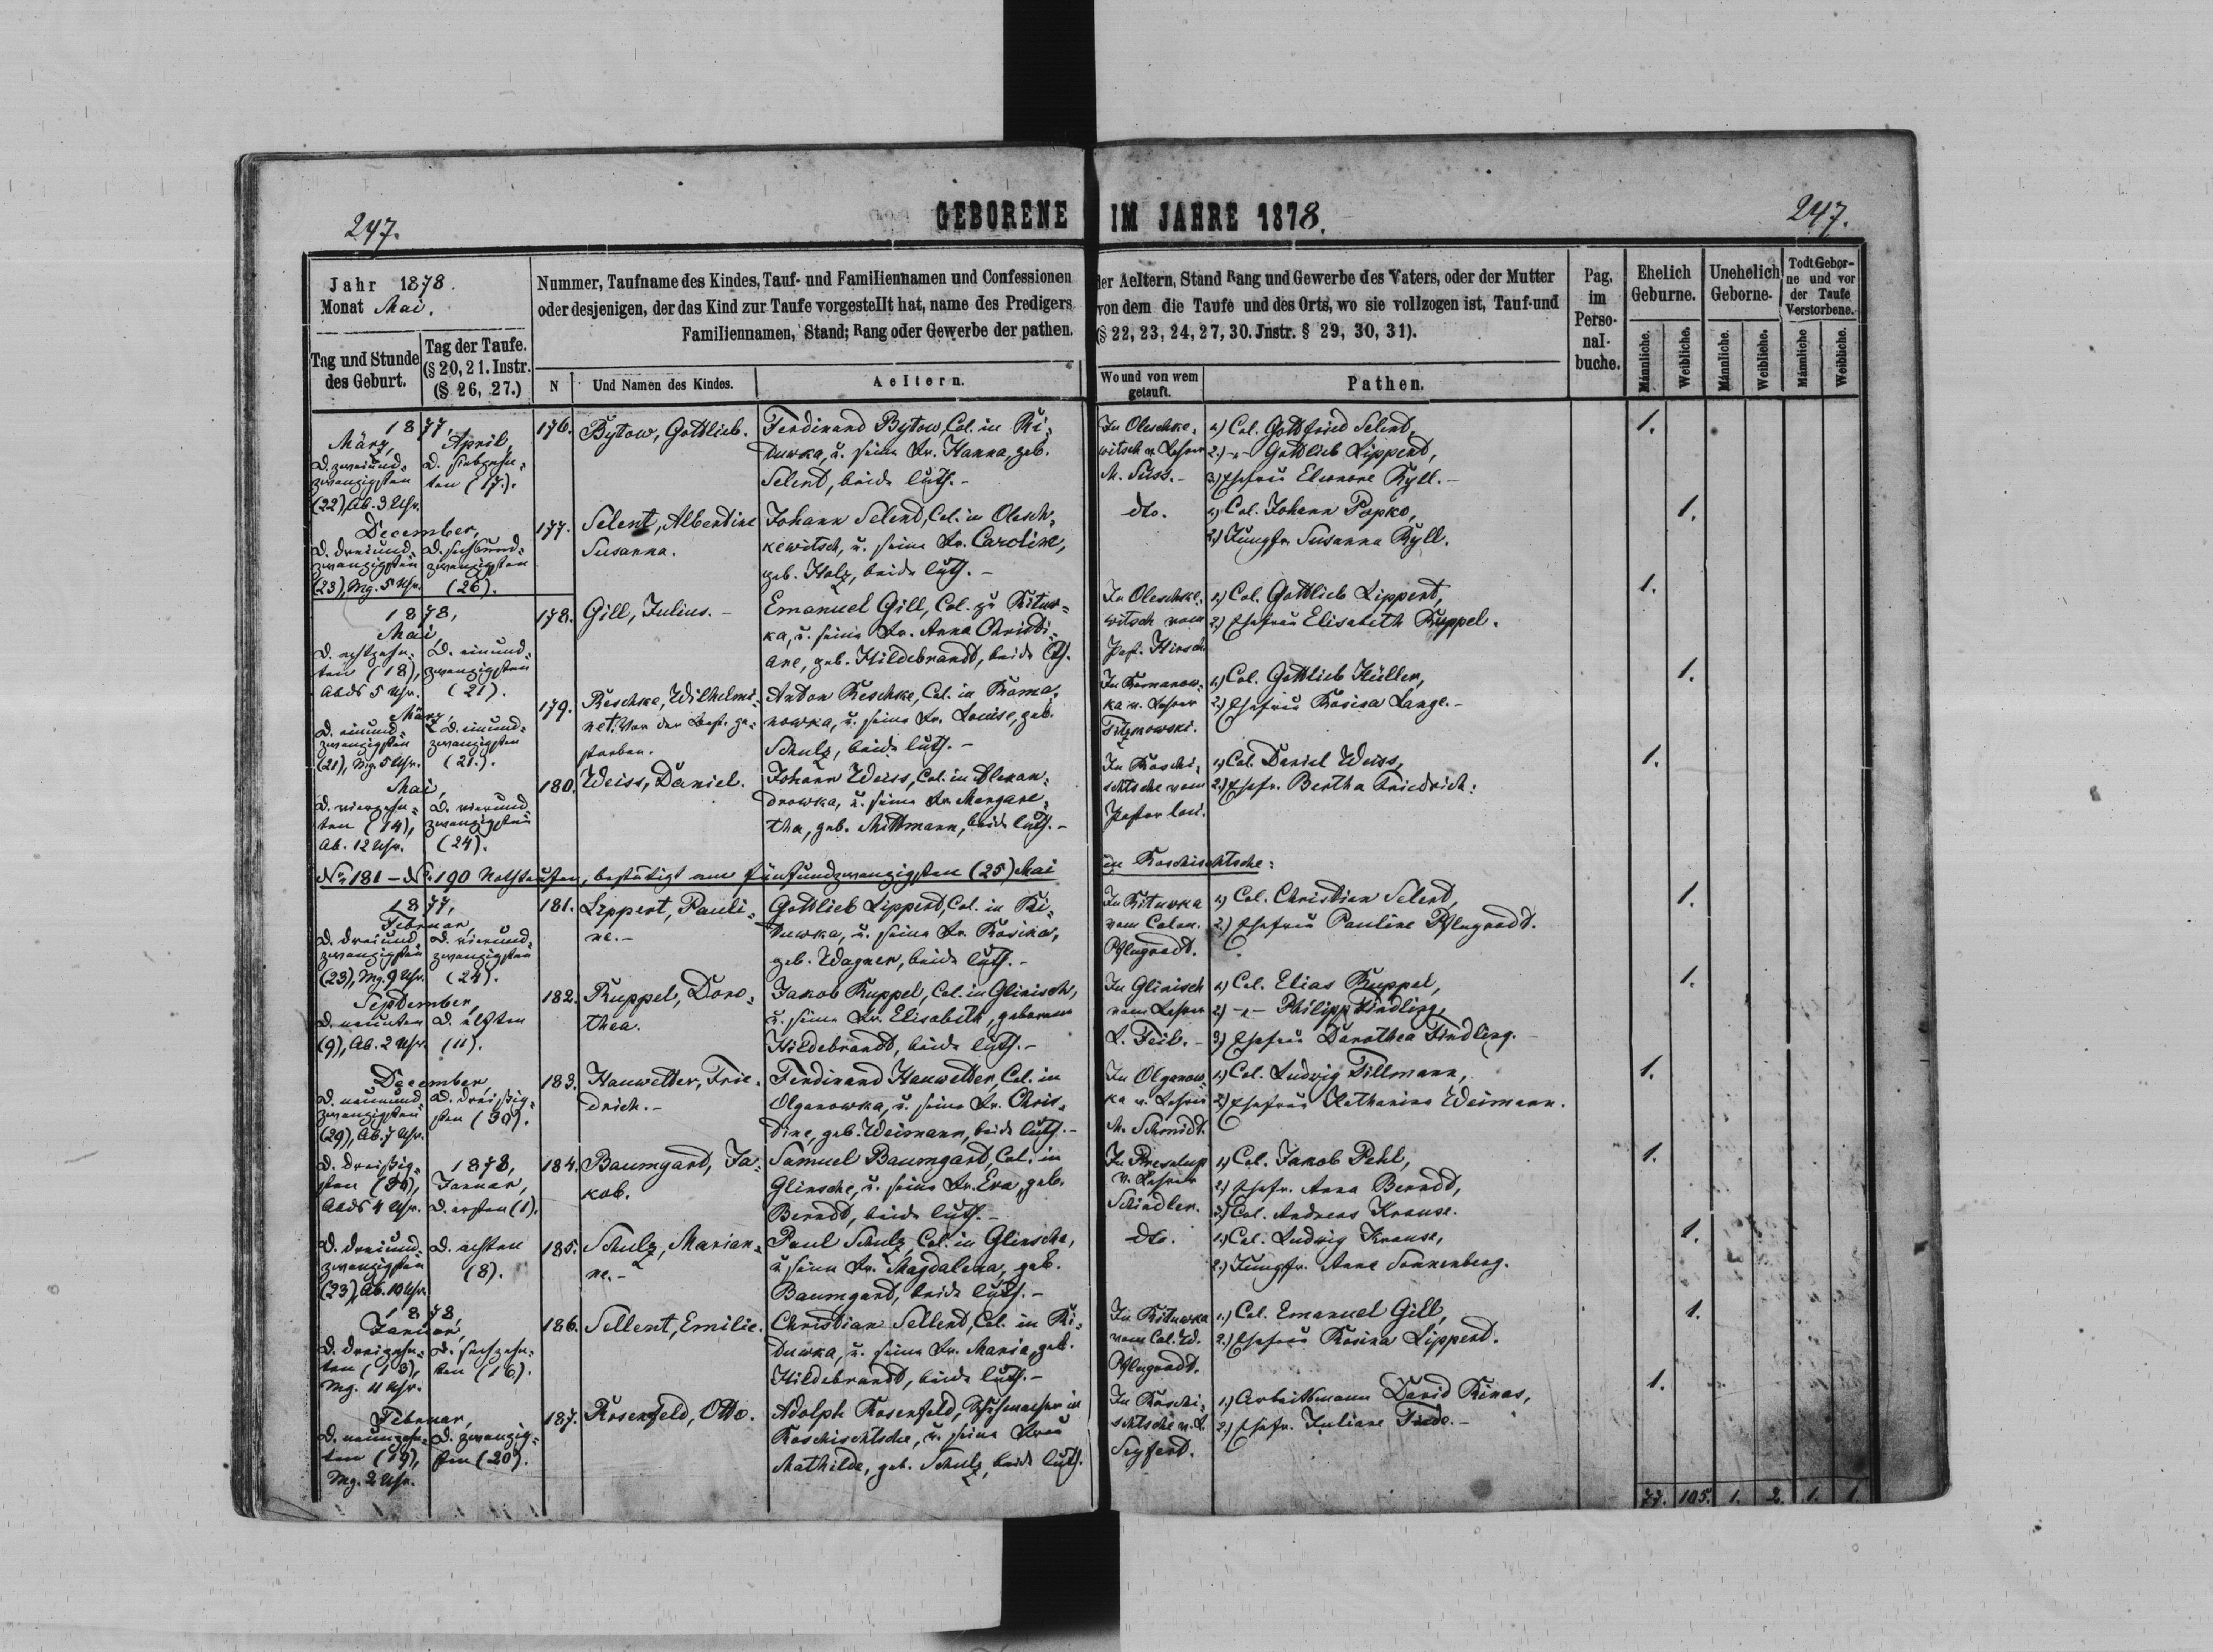 247.
GEBORENE IM JAHRE 1878.
247.
Jahr 1878.
Monat Mai.
Tag und Stunde
des Geburt.
Tag der Taufe.
(§ 20, 21. Instr.
(§ 26, 27.)
Nummer, Taufname des Kindes, Tauf- und Familiennamen und Confessionen
oder desjenigen, der das Kind zur Taufe vorgestellt hat, name des Predigers
Familiennamen, Stand; Rang oder Gewerbe der pathen.
N
Und Namen des Kindes.
Aeltern.
der Aeltern, Stand Rang und Gewerbe des Vaters, oder der Mutter
von dem die Taufe und des Orts, wo sie vollzogen ist, Tauf-und
(§ 22, 23, 24, 27, 30. Jnstr. § 29, 30, 31).
Wo und von wem
getauft.
Pathen.
Pag.
im
Perso-
nal-
buche.
Ehelich
Geburne.
Unehelich
Geborne.
Todt Gebor-
ne und vor
der Taufe
Verstorbene.
Männliche.
Weibliche.
Männliche.
Weibliche.
Männliche
Weibliche.
1877,
März,
D. zweiund-
zwanzigsten
(22), Ab. 3 Uhr.
April,
D. siebzehn-
ten (17.).
176.
Bytow, Gottlieb.
Ferdinand Bytow, Col. in Ki-
tuwka, u. seine Fr. Hanna, geb.
Selent, beide luth. -
In Oleschke-
witsch v. Lehrer
M. Süss. -
1.) Col. Gottfried Selent,
2.) -"- Gottlieb Lippert,
3.) Ehefrau Eleonore Ryll. -
1.
December,
D. dreiund-
zwanzigsten
(23), Mg. 5 Uhr.
D. sechsund-
zwanzigsten
(26).
177.
Selent, Albertine
Susanna.
Johann Selent, Col. in Olesch-
kewitsch, u. seine Fr. Caroline,
geb. Holz, beide luth. -
dto.
1.) Col. Johann Popko,
2.) Jungfr. Susanna Ryll.
1.
1878,
Mai,
D. achtzehn-
ten (18),
Abds 5 Uhr.
D. einund-
zwanzigsten
(21).
178.
Gill, Julius. -
Emanuel Gill, Col. zu Kituw-
ka, u. seine Fr. Anna Christi-
ane, geb. Hildebrandt, beide lth.
In Oleschke-
witsch vom
Past. Hirsch
1.) Col. Gottlieb Lippert,
2.) Ehefrau Elisabeth Ruppel.
1.
März,
D. einund-
zwanzigsten
(21), Mg. 5 Uhr.
D. einund-
zwanzigsten
(21.).
179.
Reschke, Wilhelmi-
ne †. Vor der Best. ge-
storben.
Anton Reschke, Col. in Roma-
nowka, u. seine Fr. Louise, geb.
Schulz, beide luth. -
In Romanow-
ka v. Lehrer
1.) Col. Gottlieb Hüller,
2.) Ehefrau Rosina Lange. -
1.
Mai,
D. vierzehn-
ten (14),
Ab. 12 Uhr.
D. vierund
zwanzigsten
(24).
180.
Weiss, Daniel.
Johann Weiss, Col. in Alexan-
drowka, u. seine Fr. Margare-
tha, geb. Mittmann, beide luth. -
In Roschi-
schtsche vom
Pastor loci.
1.) Col. Daniel Weiss,
2.) Ehefr. Bertha Friedrich.
1.
No 181 - No 190 Nothtaufen, bestätigt am fünfundzwanzigsten (25) Mai in Roschischtsche:
1877,
Februar,
D. dreiund-
zwanzigsten
(23), Mg. 9 Uhr.
D. vierund-
zwanzigsten
(24).
181.
Lippert, Pauli-
ne. -
Gottlieb Lippert, Col. in Ki-
tuwka, u. seine Fr. Rosina,
geb. Wagner, beide luth. -
In Kituwka
vom Colon.
Pflugradt.
1.) Col. Christian Selent,
2.) Ehefrau Pauline Pflugradt.
1.
September,
D. neunten
(9), Ab. 2 Uhr.
D. elften
(11).
182.
Ruppel, Doro-
thea.
Jakob Ruppel, Col. in Glinisch,
u. seine Fr. Elisabeth, geborene
Hildebrandt, beide luth. -
In Glinisch
vom Lehrer
L. Feil. -
1.) Col. Elias Ruppel,
2.) -"- Philipp Findling,
3.) Ehefrau Dorothea Findling.
1.
December,
D. neunund-
zwanzigsten
(29), Ab. 7 Uhr.
D. dreissig-
sten (30).
183.
Hauwetter, Frie-
drich. -
Ferdinand Hauwetter, Col. in
Olganowka, u. seine Fr. Chris-
tine, geb. Weimann, beide luth. -
In Olganow-
ka v. Lehrer
M. Schmidt.
1.) Col. Ludwig Tillmann,
2.) Ehefrau Katharina Weimann.
1.
D. dreissig-
sten (30),
Abds 4 Uhr.
1878,
Januar,
D. ersten (1).
184.
Baumgard, Ja-
kob.
Samuel Baumgard, Col. in
Glinsche, u. seine Fr. Eva, geb.
Berndt, beide luth. -
In Presalup
v. Lehrer
Schindler.
1.) Col. Jakob Pehl,
2.) Ehefr. Anna Berndt,
3.) Col. Andreas Krause.
1.
D. dreiund-
zwanzigsten
(23), Ab. 10 Uhr.
D. achten
(8).
185.
Schulz, Marian-
ne. -
Paul Schulz, Col. in Glinsche,
u. seine Fr. Magdalena, geb.
Baumgard, beide luth. -
dto.
1.) Col. Ludwig Krause,
2.) Jungfr. Anna Sonnenberg.
1.
1878,
Januar,
D. dreizehn-
ten (13),
Mg. 11 Uhr.
D. sechzehn-
ten (16).
186.
Sellent, Emilie.
Christian Sellent, Col. in Ki-
tuwka, u. seine Fr. Maria, geb.
Hildebrandt, beide luth. -
In Kituwka
vom Col. W.
Pflugradt.
1.) Col. Emanuel Gill,
2.) Ehefrau Rosina Lippert.
1.
Februar,
D. neunzehn-
ten (19),
Mg. 2 Uhr.
D. zwanzig-
sten (20).
187.
Rosenfeld, Otto.
Adolph Rosenfeld, Schuhmacher in
Roschischtsche, u. seine Frau
Mathilde, geb. Schulz, beide luth.
In Roschi-
schtsche v. L.
Seyferd.
1.) Arbeitsmann David Kinas,
2.) Ehefr. Juliane Tiede. -
1.
77. 105. 1. 2. 1. 1.